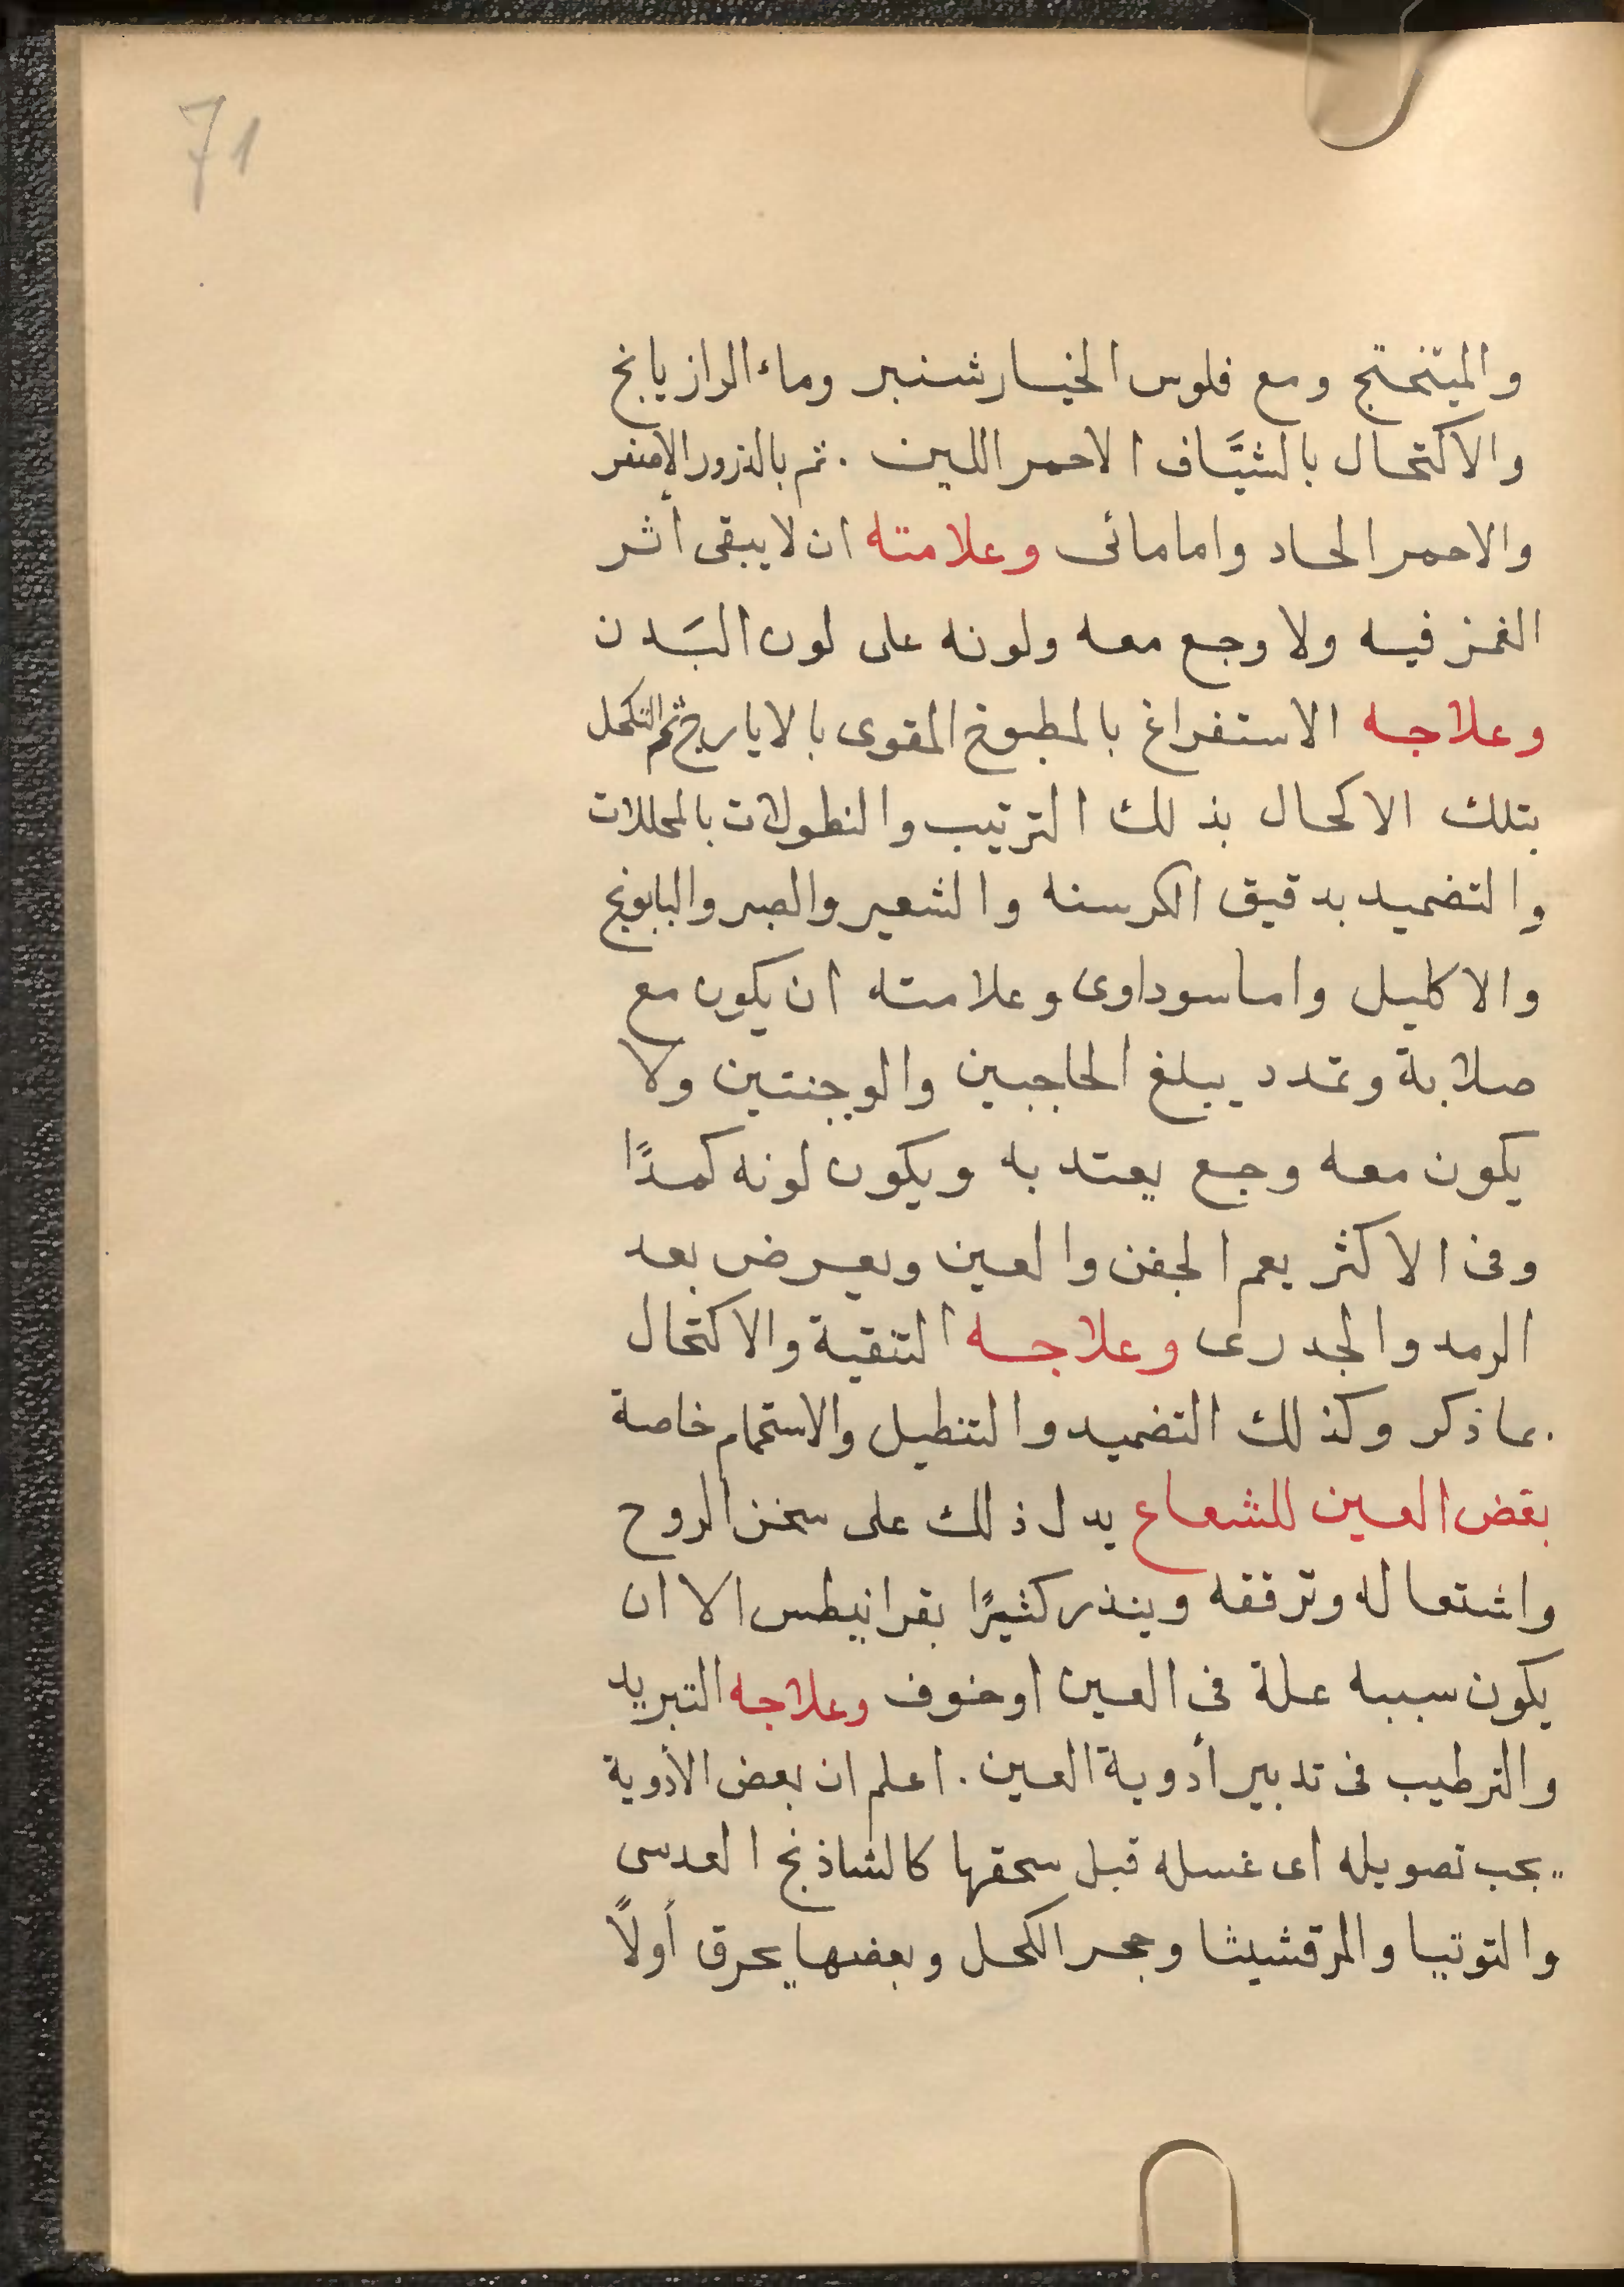 71
والميتختج ومع فلوس الخيار شنبر وماء الرازيانج
والاكتحال بالشيَّاف الاحمر اللين . ثم بالذرور الأصفر
والاحمر الحاد واما مائى وعلامته ان لا يبقى أثر
الغمز فيه ولا وجع معه ولونه على لون البَدن
وعلاجه الاستفراغ بالمطبوخ المقوى بالايارج ثم التكحل
بتلك الاكحال بذلك الترتيب والنطولات بالمحللات
والتضميد بدقيق الكرسنه والشعير والصبر والبابونج
والاكليل واما سوداوى وعلامته ان يكون مع
صلابة وتمدد يبلغ الحاجبين والوجنتين ولا
يكون معه وجع يعتد به ويكون لونه كمدًا
وفى الاكثر يعم الجفن والعين ويعرض بعد
الرمد والجدرى وعلاجه التنقية والاكتحال
بما ذكر وكذلك التضميد والتنطيل والاستحمام خاصة
بقض العين للشعاع يدل ذلك على سخن الروح
واشتعاله وترققه وينذر كثيرًا بقرانيطس الا ان
يكون سببه علة فى العين او خوف وعلاجه التبريد
والترطيب فى تدبير أدوية العين . اعلم ان بعض الأدوية
يجب تصويله اى غسله قبل سحقها كالشاذنج العدسى
والتوتيا والمرقشيثا وحجر الكحل وبعضها يحرق أولاً